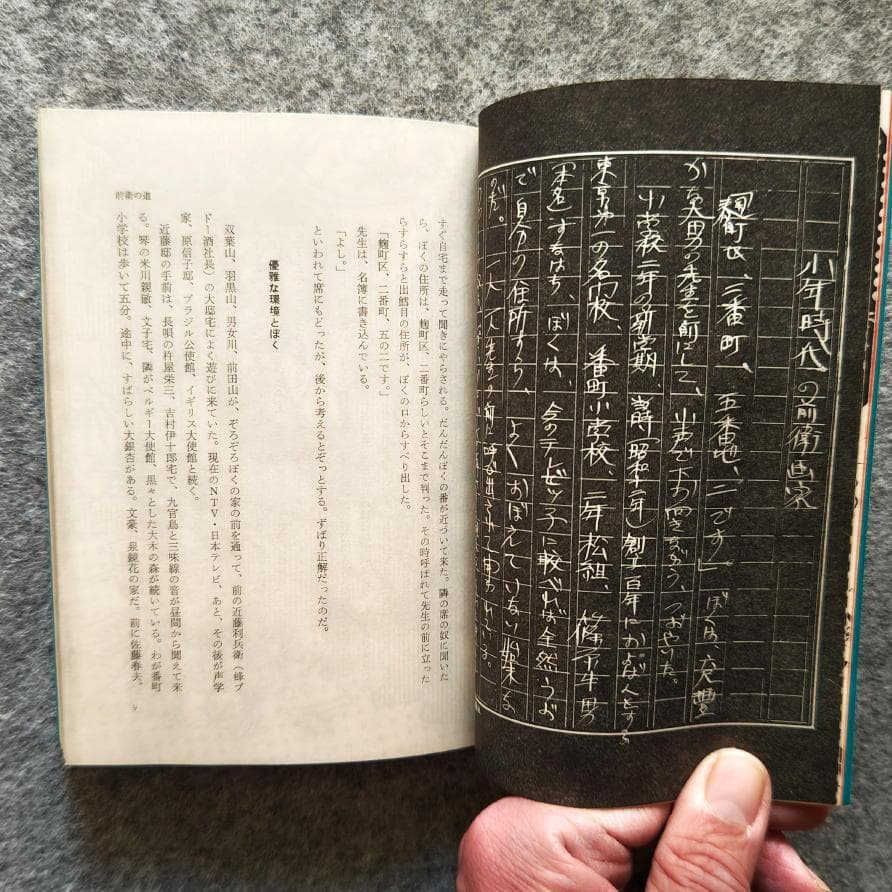 小年時代の前衛画家
「麹町区、三番町、五番地、二です」。ぼくは、六尺豊
かな大男の先生を前にして、小声で つぶやいた。
小学校二年の新学期 当時(昭和 年)創立百年になんなんとする
東京第一の名門校、番町小学校、二年松組、篠原牛男
(本名)すなはち、ぼくは、今のテレビッ子に較べれば全然うぶ
で自分の住所すら、よくおぼえていない始末な
のだ。一人一人先生の前に呼び出され
すぐ自宅まで走って聞きにやらされる。だんだんぼくの番が近づいて来た。隣の席の奴に聞いた
ら、ぼくの住所は、麹町区、二番町らしいとそこまで判った。その時呼ばれて先生の前に立った
らすらすらと出鱈目の住所が、ぼくの口からすべり出した。
「麹町区、二番町、五の二です。」
先生は、名簿に書き込んでいる。
「よし。」
といわれて席にもどったが、後から考えるとぞっとする。ずばり正解だったのだ。
優雅な環境とぼく
双葉山、羽黒山、男女川、前田山が、ぞろぞろぼくの家の前を通って、前の近藤利兵衛(蜂ブ
ドー酒社長)の大邸宅によく遊びに来ていた。現在のNTV・日本テレビ、あと、その後が声学
家、原信子邸、ブラジル公使館、イギリス大使館と続く。
近藤邸の手前は、長唄の杵屋栄三、吉村伊十郎宅で、九官鳥と三味線の音が昼間から聞えて来
る。琴の米川親敏、文子宅、隣がベルギー大使館、黒々とした大木の森が続いている。わが番町
小学校は歩いて五分。途中に、すばらしい大銀杏がある。文豪、泉鏡花の家だ。前に佐藤春夫、
前衛の道
9